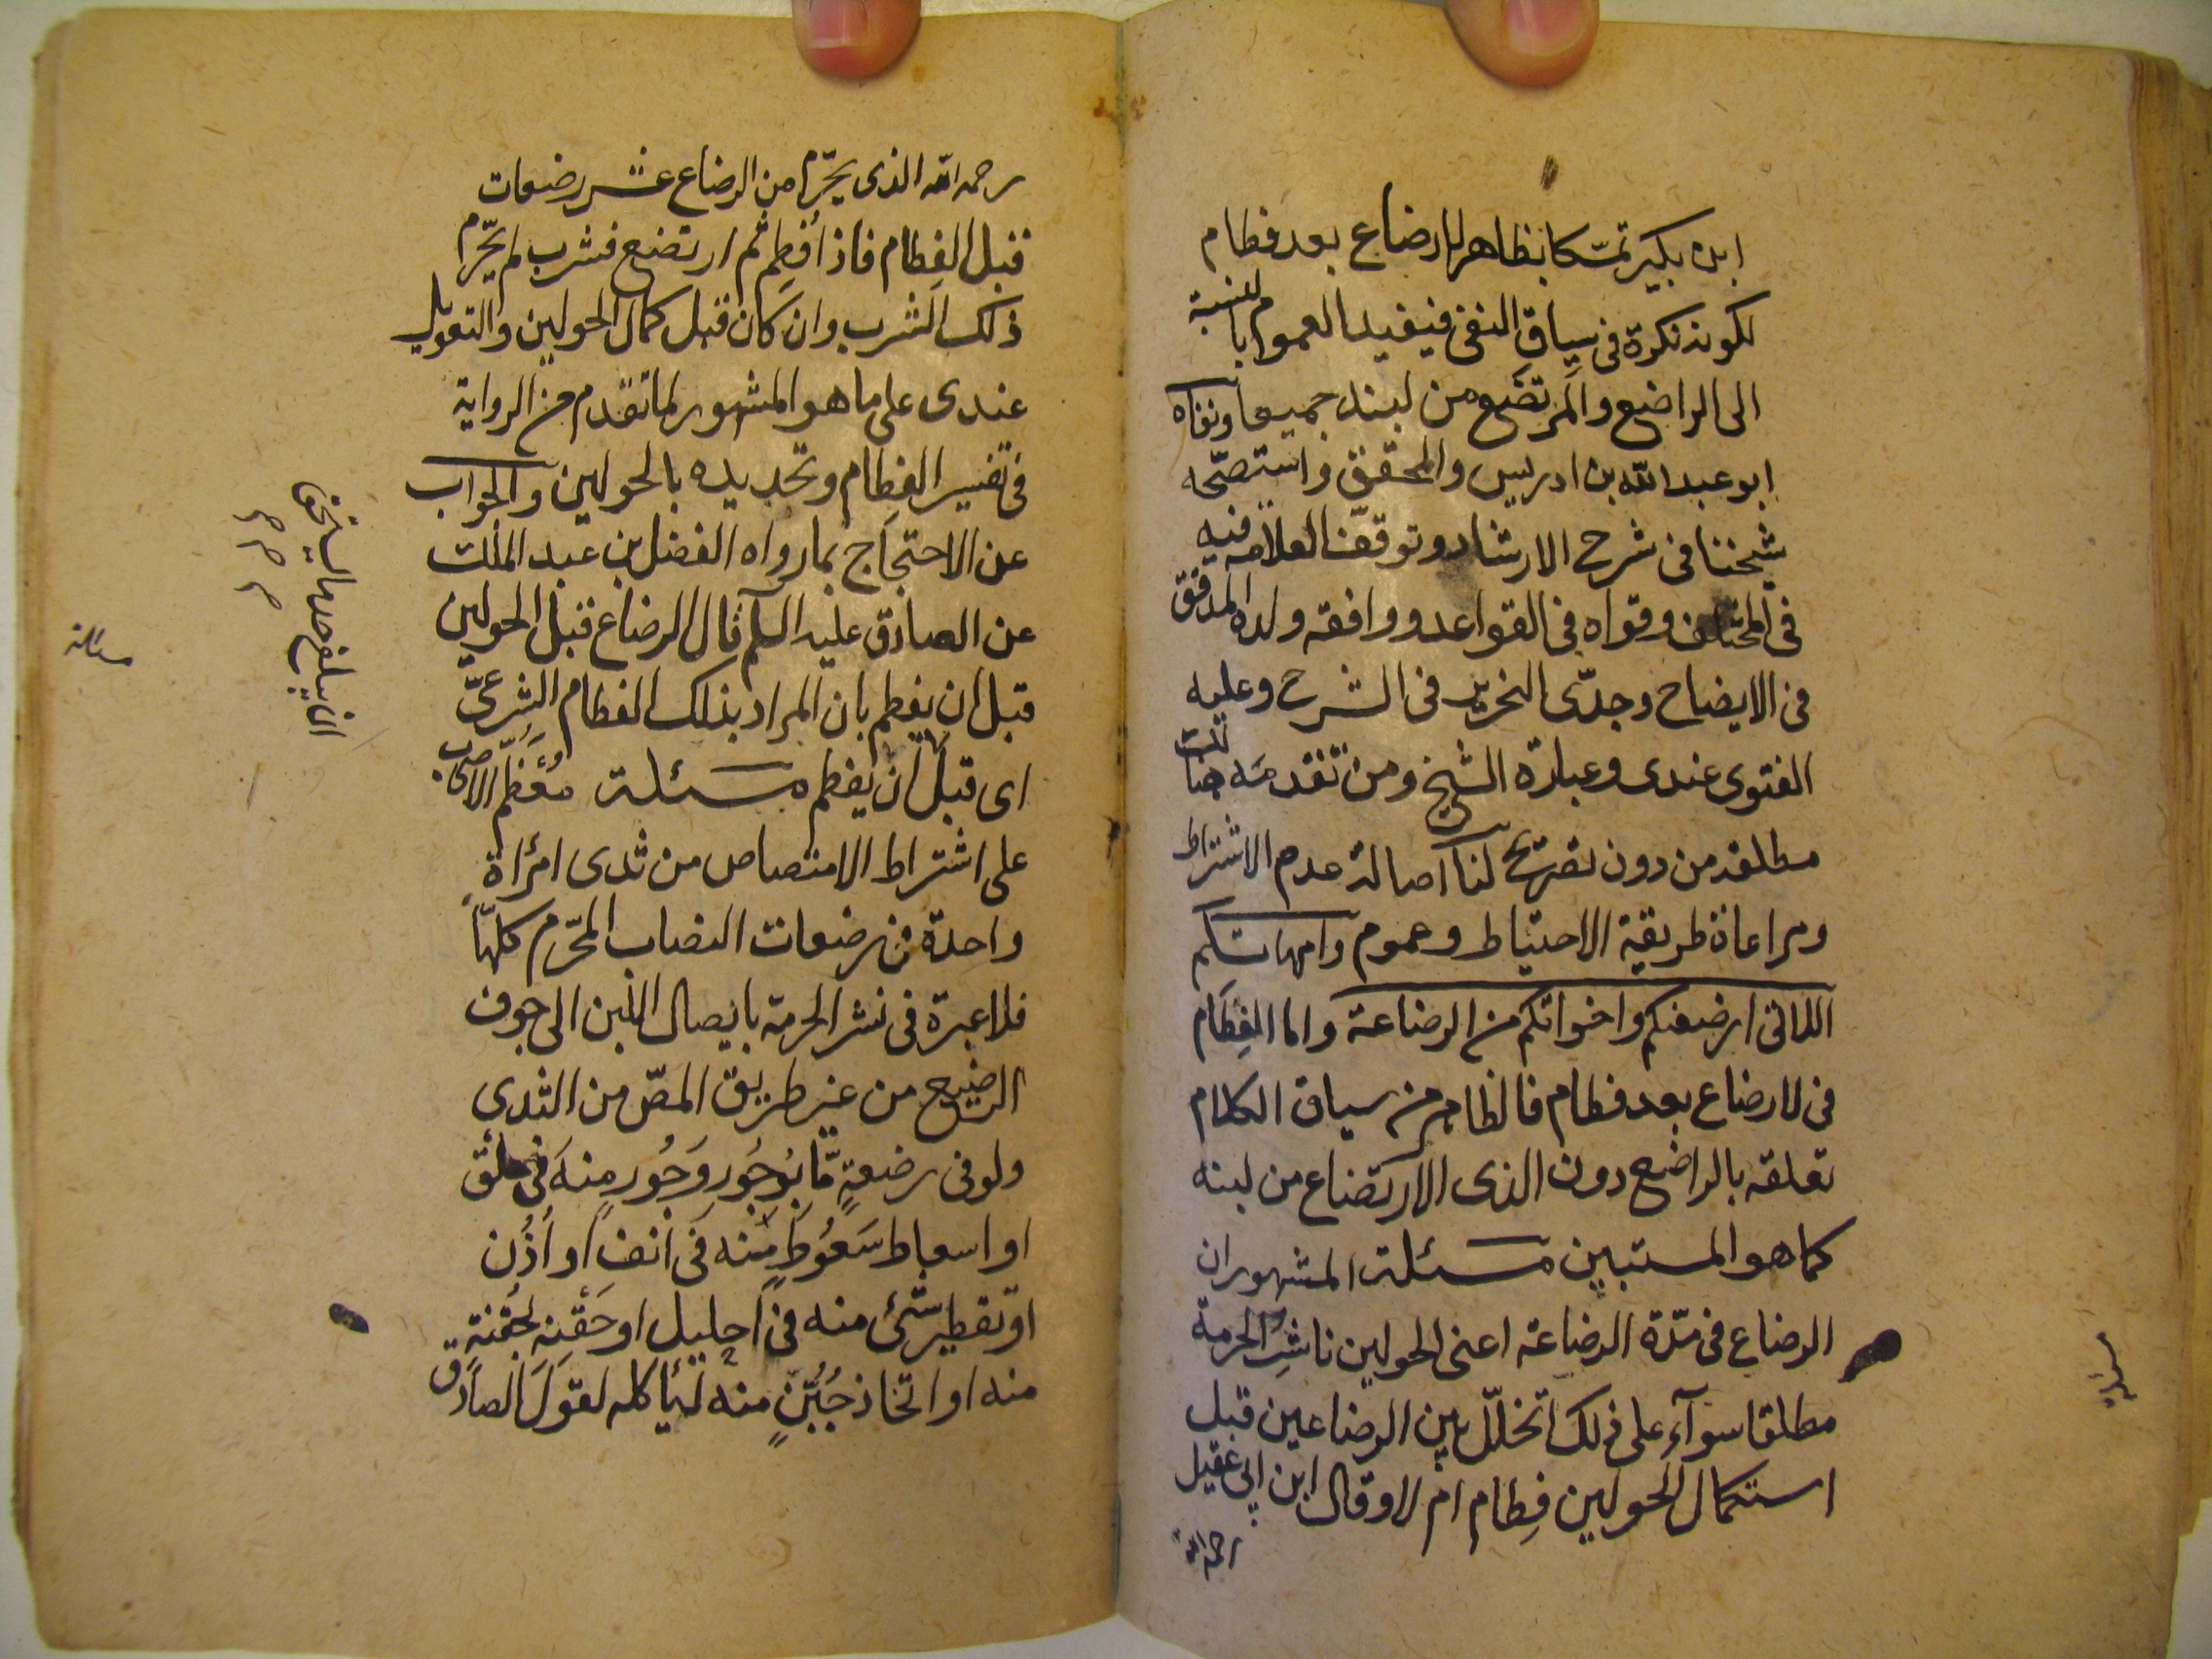 ابن بكير تمسّكا بظاهر لا رضاع بعد فطام
لكونه نكرة فى سياق النفى فيفيد العموم بالنسبة
الى الراضع والمرتضع من لبنه جميعا ونفاه
ابو عبد الله بن ادريس والمحقق واستصحّه
شيخنا فى شرح الارشاد وتوقف العلامة فيه
فى المختلف وقواه فى القواعد ووافقه ولده المدقق
فى الايضاح وجدّى النحرير فى الشرح وعليه
الفتوى عندى وعبارة الشيخ ومن تقدمه
مطلقة من دون تصريح لنا اصالة عدم الاشتراط
ومراعاة طريقة الاحتياط وعموم وامهاتكم
اللاتى ارضعنكم واخواتكم من الرضاعة واما الفِطَام
فى لا رضاع بعد فطام فالظاهر من سياق الكلام
تعلقه بالراضع دون الذى الارتضاع من لبنه
كما هو المستبين مسئلة المشهور ان
الرضاع فى مدّة الرضاعة اعنى الحولين ناشِرُ الحرمة
مطلقا سوآء على ذلك اتخلّل بين الرضاعين قبل
استكمال الحولين فِطام ام لا وقال ابن ابى عقيل
رحمه الله
مسئلة
رحمه الله الذى يحرّم من الرضاع عشر رضعات
قبل الفِطام فاذا فُطِم ثم ارتضع فشرب لم يحرّم
ذلك الشرب وان كان قبل كمال الحولين والتعويل
عندى على ما هو المشهور لما تقدم من الرواية
فى تفسير الفطام وتحديده بالحولين والجواب
عن الاحتجاج بما رواه الفضل بن عبد الملك
عن الصادق عليه السلم قال الرضاع قبل الحولين
قبل ان يفطم بان المراد بذلك الفطام الشرعىّ
اى قبل ان يفطم مسئلة مُعْظَم الاصحاب
على اشتراط الامتصاص من ثدى امرأةٍ
واحدة فى رضعات النصاب المحرّم كلّها
فلا عبرة فى نشر الحرمة بايصال اللبن الى جوف
الرضيع من غير طريق المصّ من الثدى
ولو فى رضعةٍ مّا بوجُور وَجُورٍ منه فى حلق
او اسعاط سَعُوطٍ منه فى انف او اُذُن
او تقطير شىء منه فى احليل او حَقْنِه بحُقنةٍ
منه او اتخاذ جُبُنٍّ منه ليأكله لقول الصادق
ان يبلغ حد ما يستحق
مسئلة